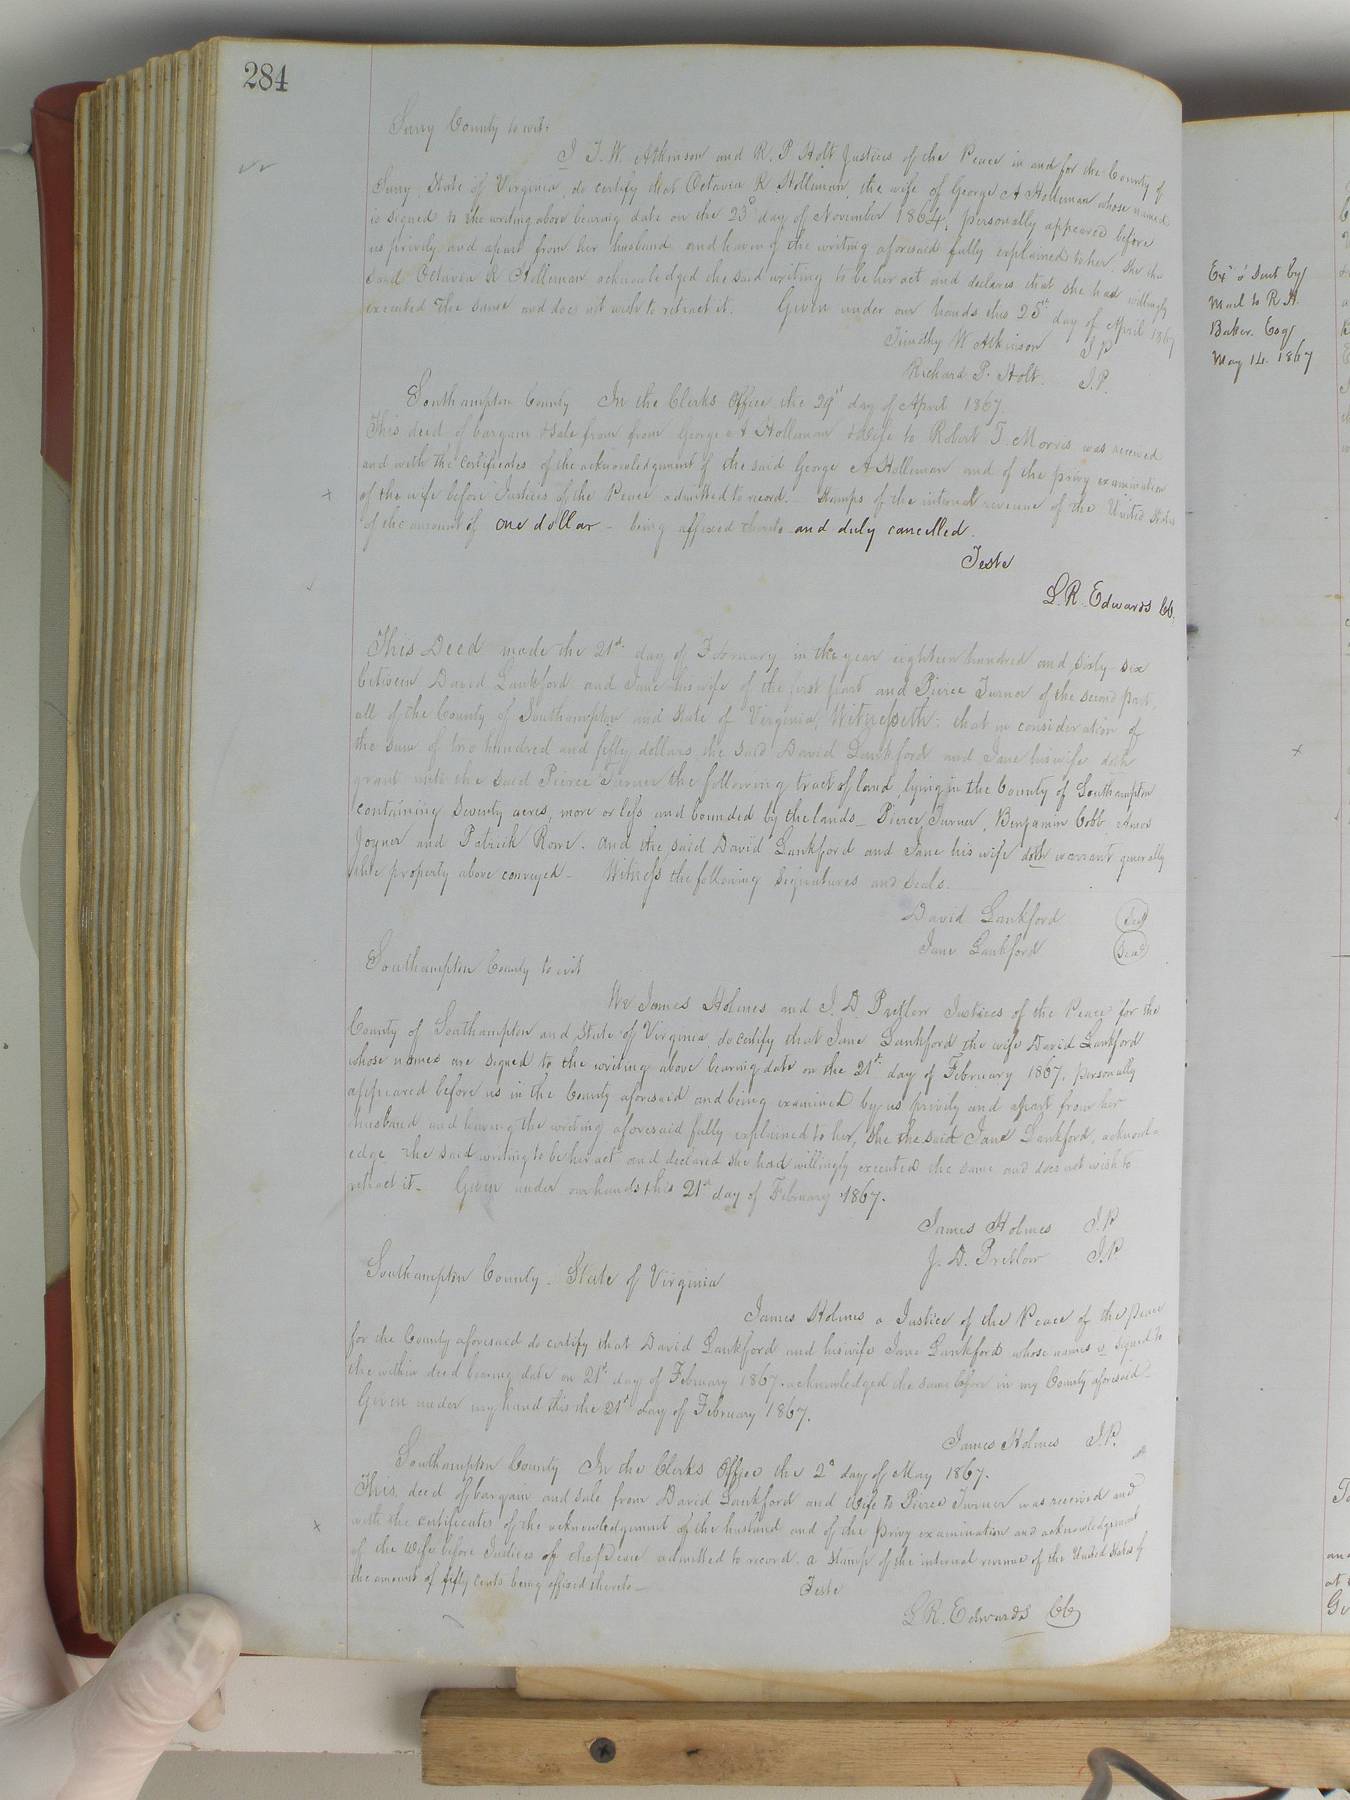 284
Surry County to wit:
I T. W. Atkinson and R. P. Holt Justices of the Peace in and for the County of
Surry State of Virginia, do certify that Octavia R Holleman, the wife of George A Holleman whose names
is signed to the writing above bearing date on the 23d day of November 1864, personally appeared before
us privily and apart from her husband and having the writing aforesaid fully explained to her. She the
said Octavia R Holleman acknowledged the said writing to be her act and declares that she had willingly
executed the same and does not wish to retract it. Given under our hands this 25th day of April 1867
Timothy W Atkinson J.P
Richard P. Holt. J.P.
Southampton County In the Clerks Office the 29th day of April 1867.
This deed of bargain & sale from from George A Holleman & Wife to Robert T. Morris was received
and with the certificates of the acknowledgment of the said George A Holleman and of the privy examination
of the wife before Justices of the Peace admitted to record. Stamps of the internal revenue of the United States
of the amount of one dollar - being affixed thereto and duly cancelled.
Teste
L. R. Edwards CC.
This Deed made the 21st day of February in the year eighteen hundred and sixty-six
between David Lankford and Jane his wife of the first part and Pierce Turner of the second part,
all of the County of Southampton and State of Virginia, Witnesseth: that in consideration of
the sum of two hundred and fifty dollars the said David Lankford and Jane his wife doth
grant unto the said Pierce Turner the following tract of land, lying in the County of Southampton
containing Seventy acres, more or less and bounded by the lands - Pierce Turner, Benjamin Cobb, Amos
Joyner and Patrick Rowe. And the said David Lankford and Jane his wife doth warrant generally
the property above conveyed - Witness the following signatures and seals.
David Lankford Seal
Jane Lankford Seal
Southampton County to wit
We James Holmes and J. D. Pretlow Justices of the Peace for the
County of Southampton and State of Virginia do certify that Jane Lankford the wife David Lankford
whose names are signed to the writing above bearing date on the 21st day of February 1867, personally
appeared before us in the County aforesaid and being examined by us privily and apart from her
husband and having the writing aforesaid fully explained to her, She the said Jane Lankford, acknowl-
edge the said writing to be her act and declared she had willingly executed the same and does not wish to
retract it - Given under our hands this 21st day of February 1867.
James Holmes J.P
J. D. Pretlow J.P
Southampton County. State of Virginia
James Holmes a Justice of the Peace of the peace
for the County aforesaid do certify that David Lankford and his wife Jane Lankford whose names is signed to
the within deed bearing date on 21st day of February 1867. acknowledged the same before in my County aforesaid -
Given under my hand this the 21st day of February 1867.
James Holmes J.P.
Southampton County In the Clerks Office the 2d day of May 1867.
This deed of bargain and sale from David Lankford and Wife to Pierce Turner was received and
with the certificates of the acknowledgement of the husband and of the privy examination and acknowledgement
of the Wife before Justices of the Peace admitted to record. a stamp of the internal revenue of the United States of
the amount of fifty cents being affixed thereto -
Teste
L. R. Edwards CC
Sent by
Mail to R H
Baker. Esqr
May 14. 1867